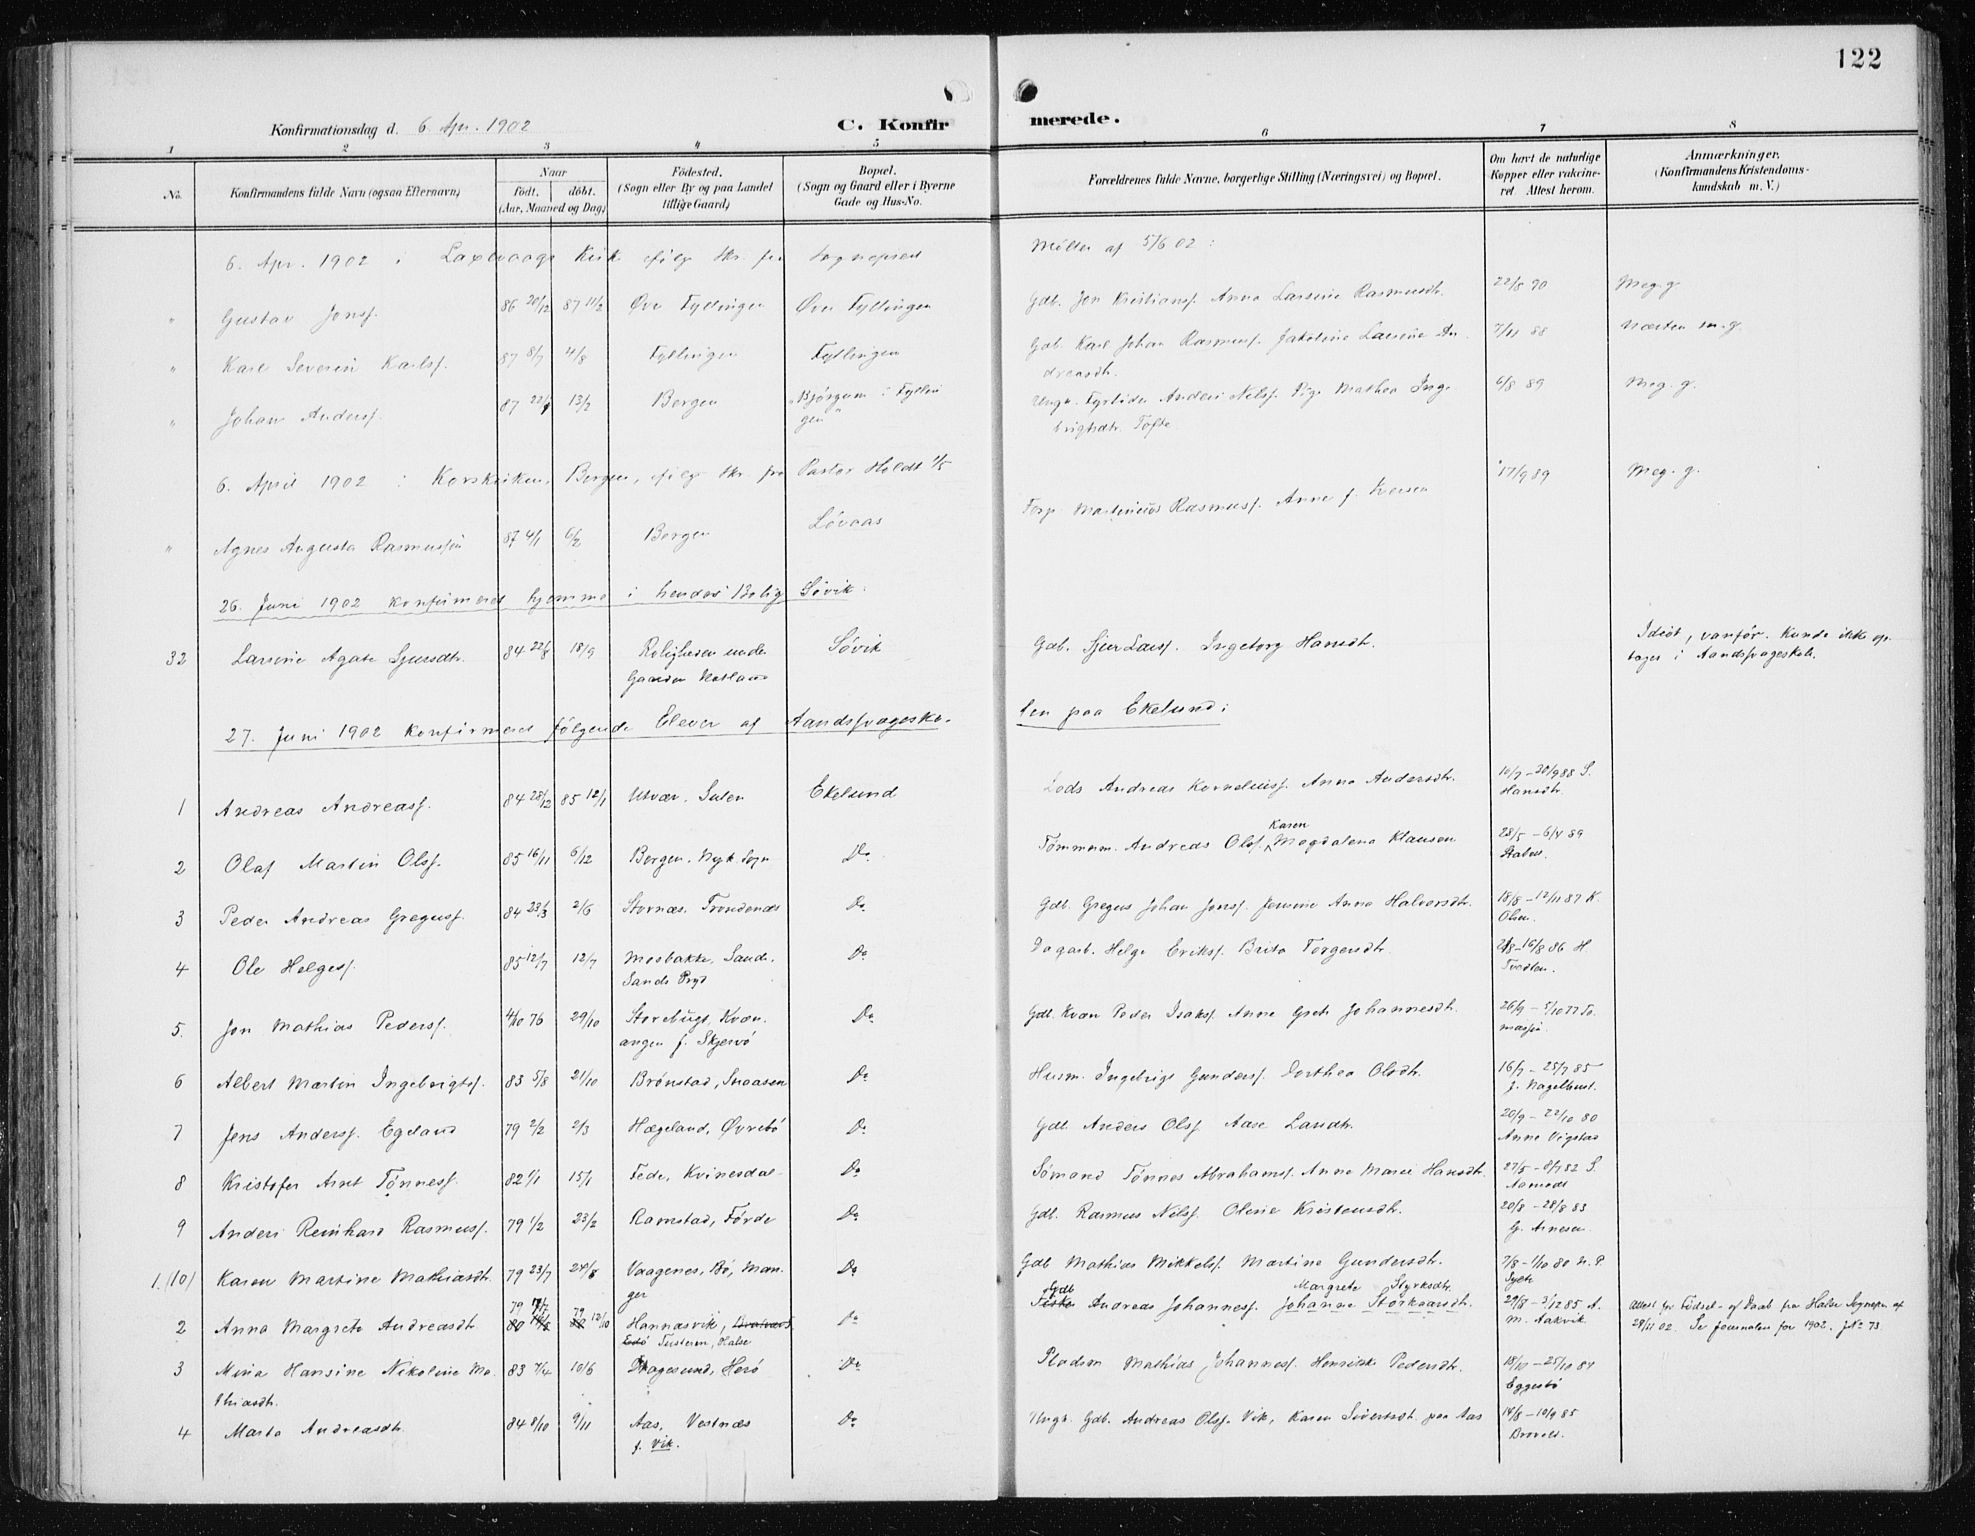 122
Konfirmationsdag d. 6. Apr. 1902
C. Konfirmerede.
1 2 3 4 5 6 7 8
No. Konfirmandens fulde Navn (ogsaa Efternavn) Naar født. døbt. (Aar, Maaned og Dag) Fødested. (Sogn eller By og paa Landet tillige Gaard) Bopæl. (Sogn og Gaard eller i Byerne Gade og Hus-No. Forældrenes fulde Navne, borgerlige Stilling (Næringsvei) og Bopæl. Om havt de naturlige Kopper eller vaccineret Attest herom. Anmærkninger. (Konfirmandens Kristendomskundskab m. V.)
6. Apr. 1902 i Laxevaags Kirke ifølge Skr. fra Sognepræst Møller af 5/6 02:
" Gustav Jonsf. 86 20/12 87 11/2 Øvr Fyllingen Øvr Fyllingen Gdb. Jon Kristiansf. Anna Larsine Rasmusdtr. 22/8 90 Meg. g.
" Karl Severin Karlsf. 87 8/7 4/8 Fyllingen Fyllingen Gdb. Karl Johan Rasmusf. Jakobine Larsine Andreasdtr. 7/11 88 Næsten m. g.
" Johan Andersf. 87 22/1 13/2 Bergen "Bjørgum" i Fyllingen Ungk. Fyrbøder Anders Nilsf. Pige Mathea Ingebrigtsdtr. Tofte 6/8 89 Meg. g.
6. April 1902 i Korskirken, Bergen, ifølge Skr. fra Pastor Holdt 1/5
" Agnes Augusta Rasmussen 87 4/1 6/2 Bergen Løvaas Forp. Martinius Rasmusf. Anne f. Iversen 17/9 89 Meg. g.
26. Juni 1902 konfirmeret hjemme i hendes Bolig Søvik:
32 Larsine Agate Sjursdtr. 84 22/8 18/9 Roligheden under Gaarden Hatland Søvik Gdb. Sjur Larsf. Ingeborg Hansdtr. Idiot, vanfør. Kunde ikke optages i Aandssvageskole.
27. Juni 1902 konfirmeret følgende Elever af Aandssvageskolen paa Ekelund:
1 Andreas Andreasf. 84 28/12 85 12/1 Utvær, Sulen Ekelund Lods Andreas Korneliusf. Anna Andersdtr. 10/7 – 20/9 88 S. Hansdtr.
2 Olaf Martin Olsf. 85 16/11 6/12 Bergen, Nyk. Sogn Do Tømmerm. Andreas Olsf. Karen Magdalena Klausen 28/5 – 6/4 89
3 Peder Andreas Gregusf. 84 23/3 2/6 Stornæs, Trondenæs Do Gdb. Gregus Johan Jonsf. Jensine Anna Halvorsdtr. 18/8 – 12/11 87 K. Olsen.
4 Ole Helgesf. 85 12/7 12/7 Mosbakke, Sande, Sands Prgd Do Dagarb. Helge Eriksf. Brita Torgersdtr. – 16/8 86 H Tvedten.
5. Jon Mathias Pedersf. 4/10 76 29/10 Storebugt, Kvænangen f. Skjervø Do Gdb. Kvæn Peder Isaksf. Anne Grete Johannesdtr. 26/9 – 5/10 77 Tomassen.
6 Albert Martin Ingebrigtsf. 83 5/8 21/10 Brønstad, Snaasen Do Husm. Ingebrigt Gundersf. Dorthea Olsdtr. 16/7 – 25/7 85 J. Nagelhus.
7 Jens Andersf. Egeland 79 2/2 2/3 Hægeland, Øvrebø Do Gdb. Anders Olsf. Aase Larsdtr. 20/9 – 22/10 80 Anne Vigstad
8 Kristofer Arnt Tønnesf. 82 1/1 15/1 Fede, Kvinesdal Do Sømand Tønnes Abrahamsf. Anne Marie Hansdtr. 27/5 – 8/7 82 S. Aamodt
9 Anders Reinhard Rasmusf. 79 1/2 23/2 Ramstad, Førde Do Gdb. Rasmus Nilsf. Oline Kristensdtr. 20/8 – 28/8 83 G. Arnesen
1.(10) Karen Martine Mathiasdtr. 79 23/7 24/8 Vaagenes, Bø, Manger Do Gdb. Mathias Mikkelsf. Martine Gundersdtr. 7/8 – 1/10 80 N. P. Sylte
2 Anna Margrete Andreasdtr. 79 17/7 79 12/10 Hannasvik, Tusteren, Halse Do Gdb. Andreas Johannesf. Johanne Storkaarsdtr. Margrete Styrksdtr. 29/8 – 3/12 85 A. M. Aakvik. Attest for Fødsel- og Daab fra Halse Sognepr. af 28/11 02. Se Journalen for 1902. JNo 73.
3 Mina Hansine Nikoline Mathiasdtr. 83 7/4 10/6 Dragesund, Herø Do Pladsm Mathias Johannesf. Henrikke Pedersdtr. 18/10 – 25/10 84 Eggesbø
4 Marta Andreasdtr. 84 8/10 9/11 Aas, Vestnæs f. Vik. Do Ungk. Gdb. Andreas Olsf. Vik, Karen Sivertsdt. paa Aas 14/8 – 10/9 85